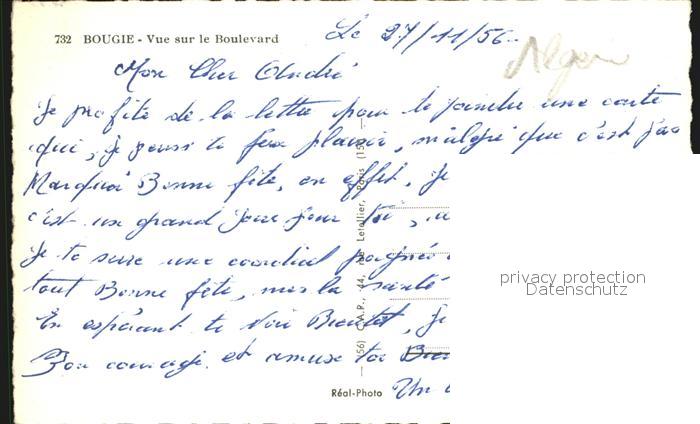 732 BOUGIE - Vue sur le Boulevard
Le 27/11/56
Alger
Mon Cher André
Je profite de la lettre pour te joindre une carte
qui, je pense te fera plaisir, malgré que c'est pas
Marqué Bonne fête, en effet, Je
c'est un grand jour pour toi,
Je te serre une cordial poignée
tout Bonne fête, mes la santé
En espérant te Voir Bientôt, Je
Bon courage et amuse toi
Un
(56) C.A.P., 44, rue Letellier, Paris (15e)
Réal-Photo
privacy protection
Datenschutz